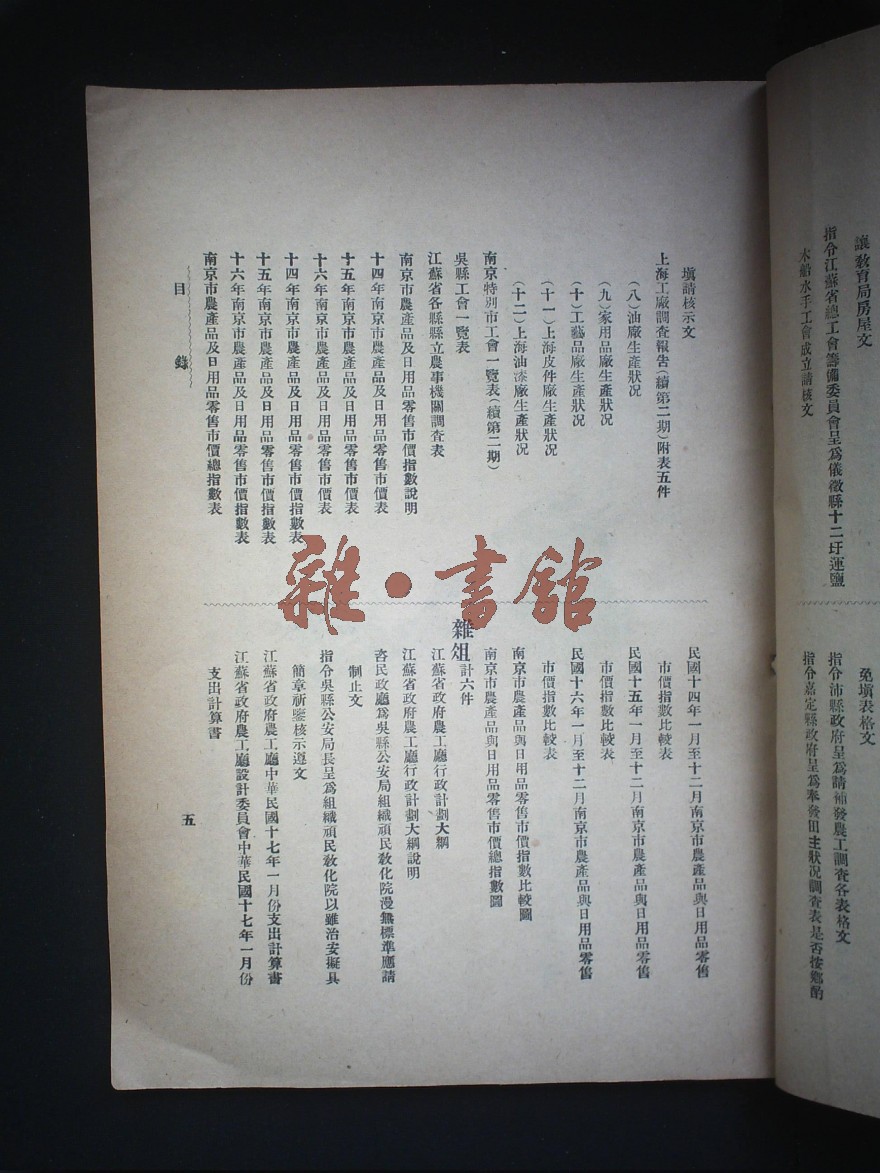 讓教育局房屋文
指令江蘇省總工會籌備委員會呈爲儀徵縣十二圩運鹽
木船水手工會成立請核文
免塡表格文
指令沛縣政府呈爲請補發農工調查各表格文
指令嘉定縣政府呈爲奉發田主狀况調查表是否按鄉酌
塡請核示文
上海工廠調查報告(續第二期)附表五件
(八)油廠生產狀况
(九)家用品廠生產狀况
(十)工藝品廠生產狀况
(十一)上海皮件廠生產狀况
(十二)上海油漆廠生產狀况
南京特別市工會一覽表(續第二期)
吳縣工會一覽表
江蘇省各縣縣立農事機關調查表
南京市農產品及日用品零售市價指數說明
十四年南京市農產品及日用品零售市價表
十五年南京市農產品及日用品零售市價表
十六年南京市農產品及日用品零售市價表
十四年南京市農產品及日用品零售市價指數表
十五年南京市農產品及日用品零售市價指數表
十六年南京市農產品及日用品零售市價指數表
南京市農產品及日用品零售市價總指數表
民國十四年一月至十二月南京市農產品與日用品零售
市價指數比較表
民國十五年一月至十二月南京市農產品與日用品零售
市價指數比較表
民國十六年一月至十二月南京市農產品與日用品零售
市價指數比較表
南京市農產品與日用品零售市價指數比較圖
南京市農產品與日用品零售市價總指數圖
雜俎計六件
江蘇省政府農工廳行政計劃大綱
江蘇省政府農工廳行政計劃大綱說明
咨民政廳爲吳縣公安局組織頑民敎化院漫無標準應請
制止文
指令吳縣公安局長呈爲組織頑民敎化院以維治安擬具
簡章祈鑒核示遵文
江蘇省政府農工廳中華民國十七年一月份支出計算書
江蘇省政府農工廳設計委員會中華民國十七年一月份
支出計算書
目錄
五
雜·書館